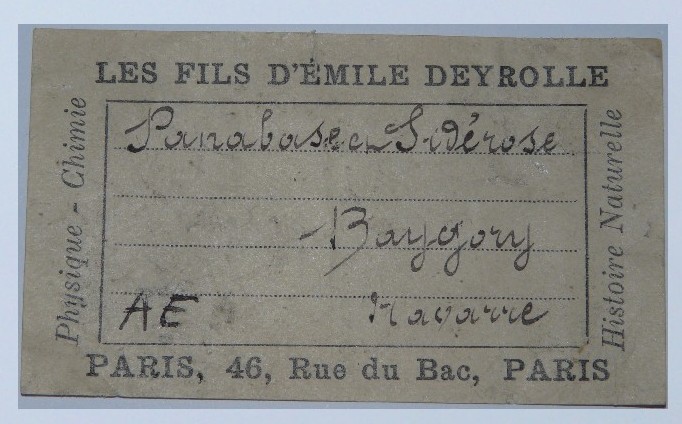 LES FILS D'ÉMILE DEYROLLE
Physique - Chimie
Panabase et Sidérose
Baygory
AE Navarre
Histoire Naturelle
PARIS, 46, Rue du Bac, PARIS